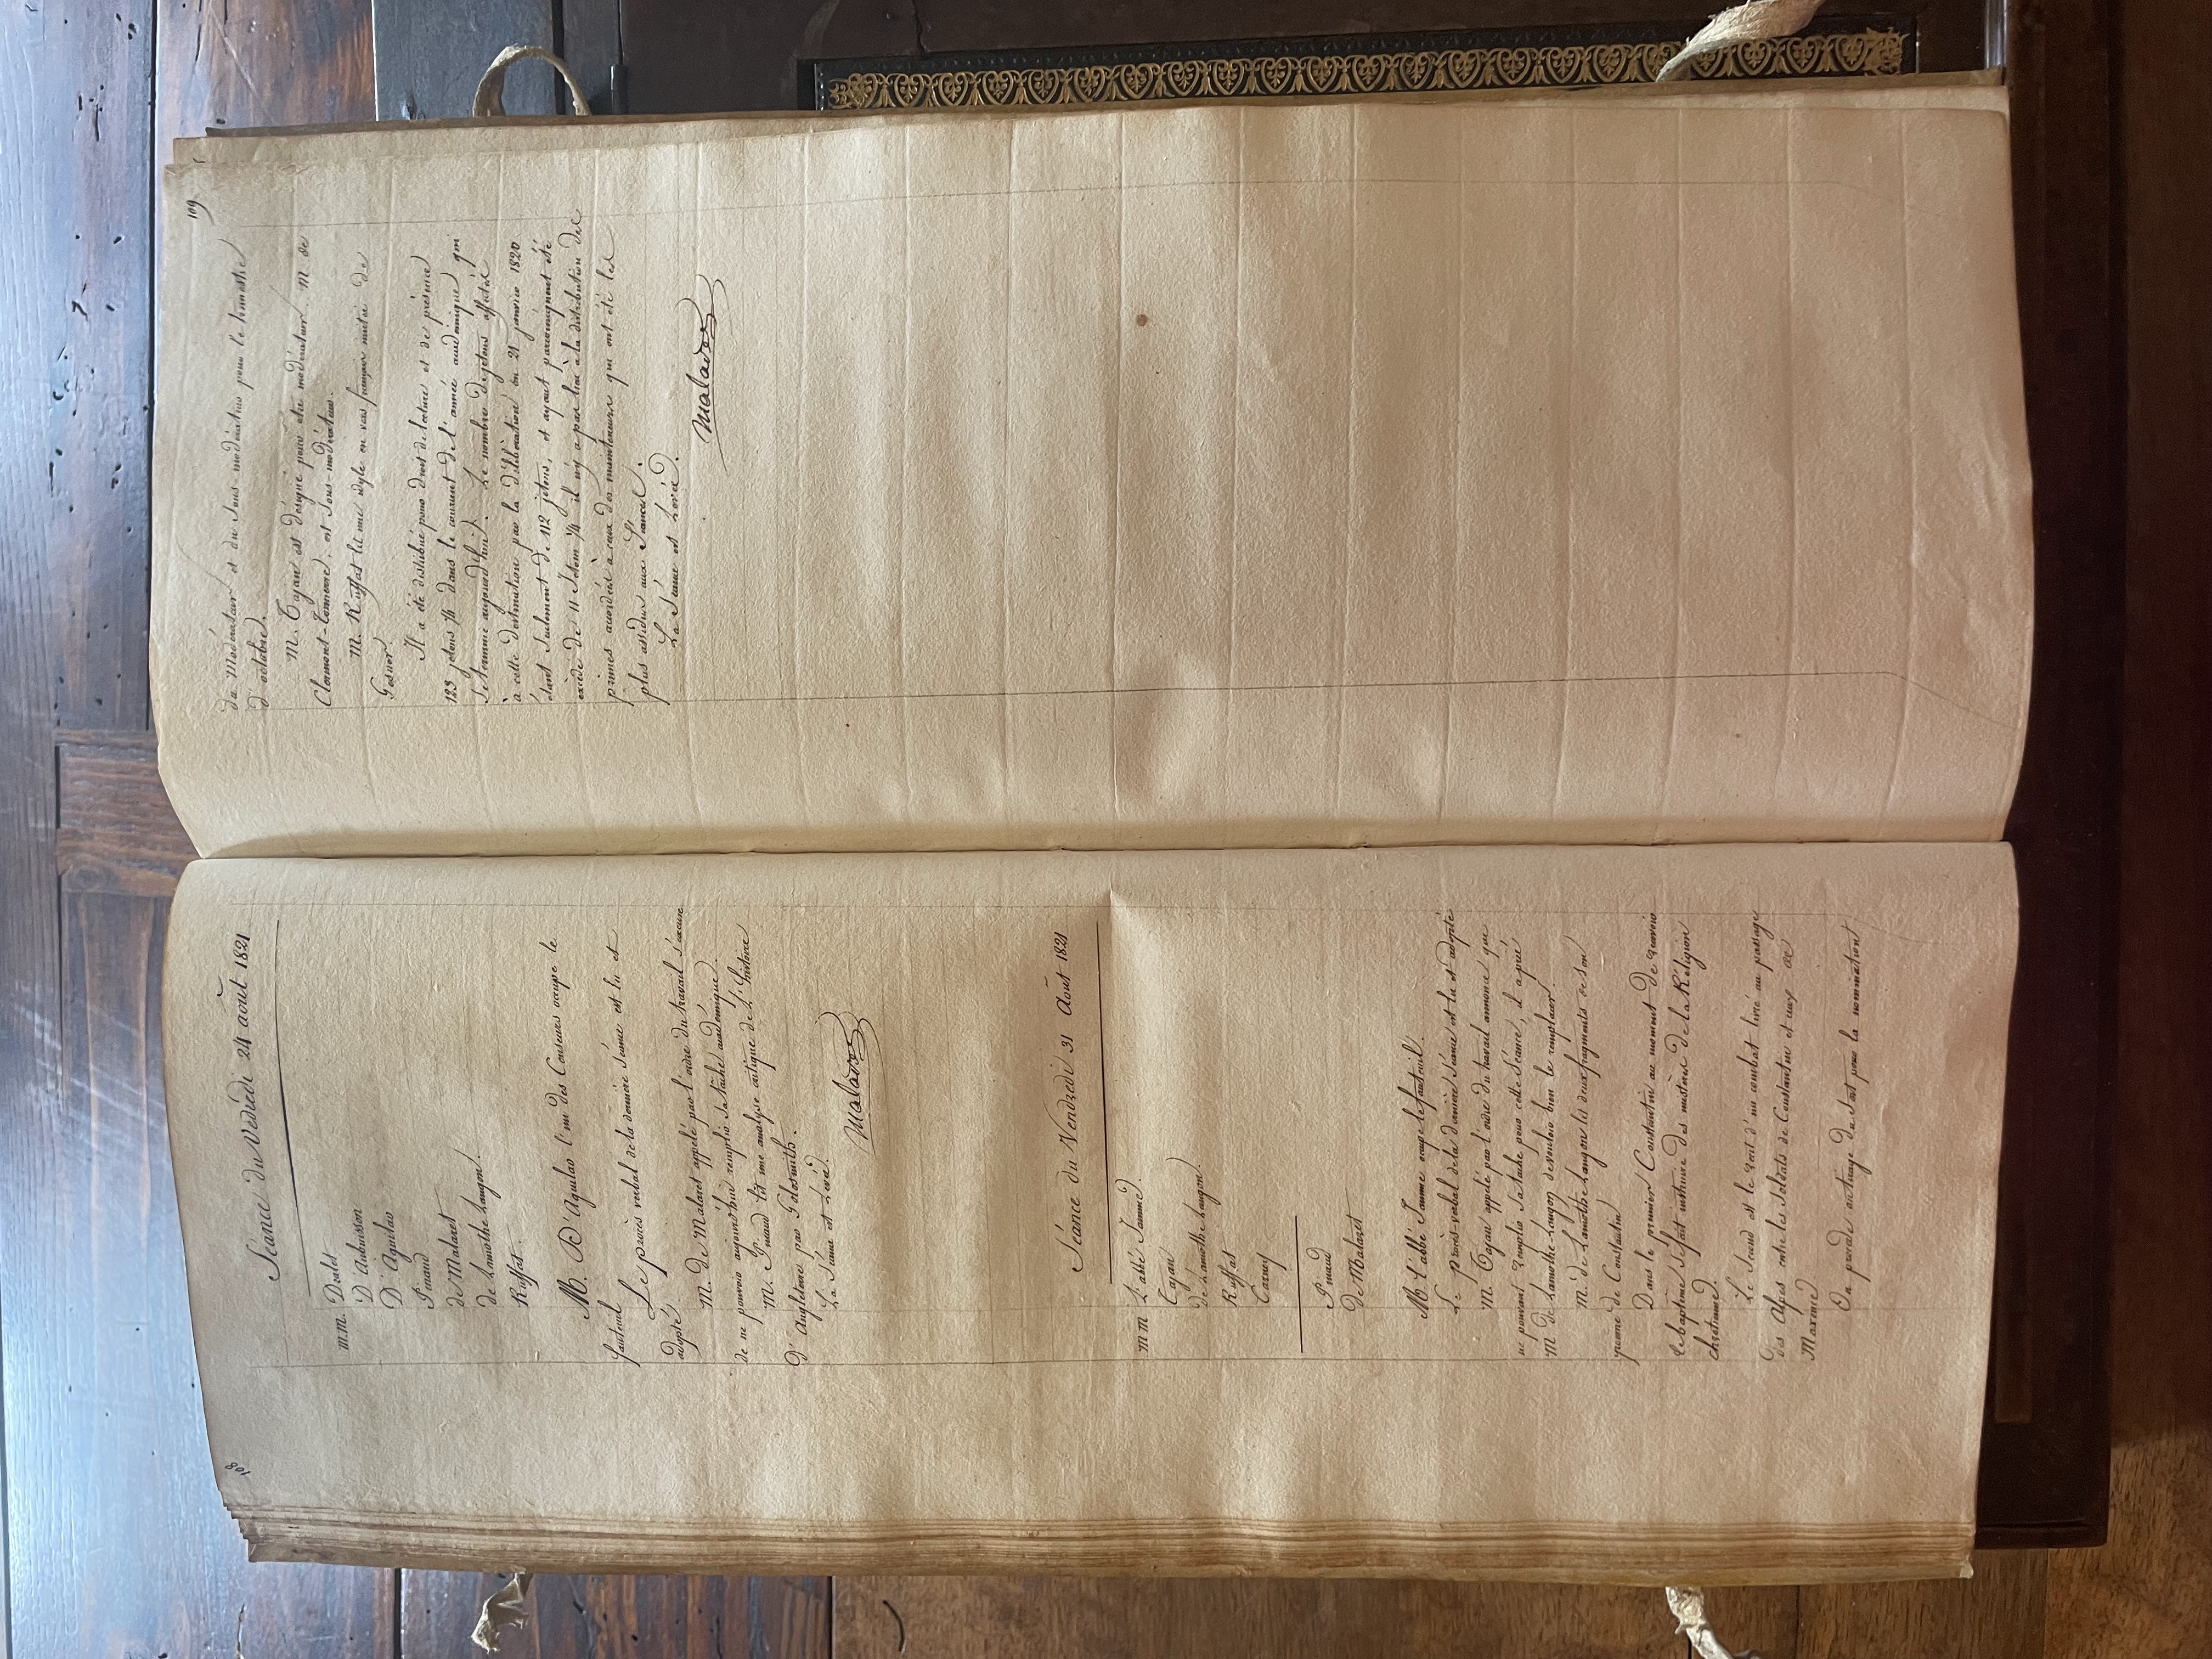 108
Séance du Vendredi 24 août 1821
M.M. Dralet
D'Aubuisson
D'Aguilar
Pinaud
de Malaret
de Lamothe Langon.
Ruffat.
M. D'Aguilar l'un des Censeurs occupe le
fauteuil
Le procès verbal de la dernière séance est lu et
adopté.
M. de Malaret appelé par l'ordre du travail s'excuse
de ne pouvoir aujourd'hui remplir sa tâche académique.
M. Pinaud lit une analyse critique de l'histoire
d'Angleterre par Goldsmith.
La Séance est Levée.
Malaret
Séance du Vendredi 31 Août 1821
M M L'abbé Jamme.
Tajan
de Lamothe Langon.
Ruffat
Carney
Pinaud
de Malaret
M. l'abbé Jamme occupe le fauteuil.
Le procès-verbal de la dernière séance est lu et adopté
M. Tajan appelé par l'ordre du travail annonce que
ne pouvant remplir sa tache pour cette séance, il a prié
M de Lamothe-Langon de vouloir bien le remplacer.
M. de Lamothe Langon lit deux fragments de son
poeme de Constantin
Dans le premier Constantin au moment de recevoir
le baptême se fait instruire des mistères de la Religion
chretienne.
Le second est le recit d'un combat livré au passage
des Alpes entre les soldats de Constantin et ceux de
Maximie
On procede au tirage du sort pour la nomination
109
du Modérateur et du sous modérateur pour le trimestre
d'octobre.
M. Tajan est désigné pour etre modérateur. M de
Clermont-Tonnerre, est sous-modérateur.
M. Ruffat lit une idyle en vers françois imitée de
Gesner.
Il a été distribué pour droit de lecture et de présence
123 jetons 1/4 dans le courant de l'année académique qui
se termine aujourd'hui. Le nombre de jetons affecté
à cette destination par la délibération du 21 janvier 1820
étant seulement de 112 jetons, et ayant par conséquent été
excédé de 11 Jetons 1/4 il n'y a pas lieu à la distribution des
primes accordées à ceux des mainteneurs qui ont été les
plus assidus aux Séances.
La Séance est Levée.
Malaret